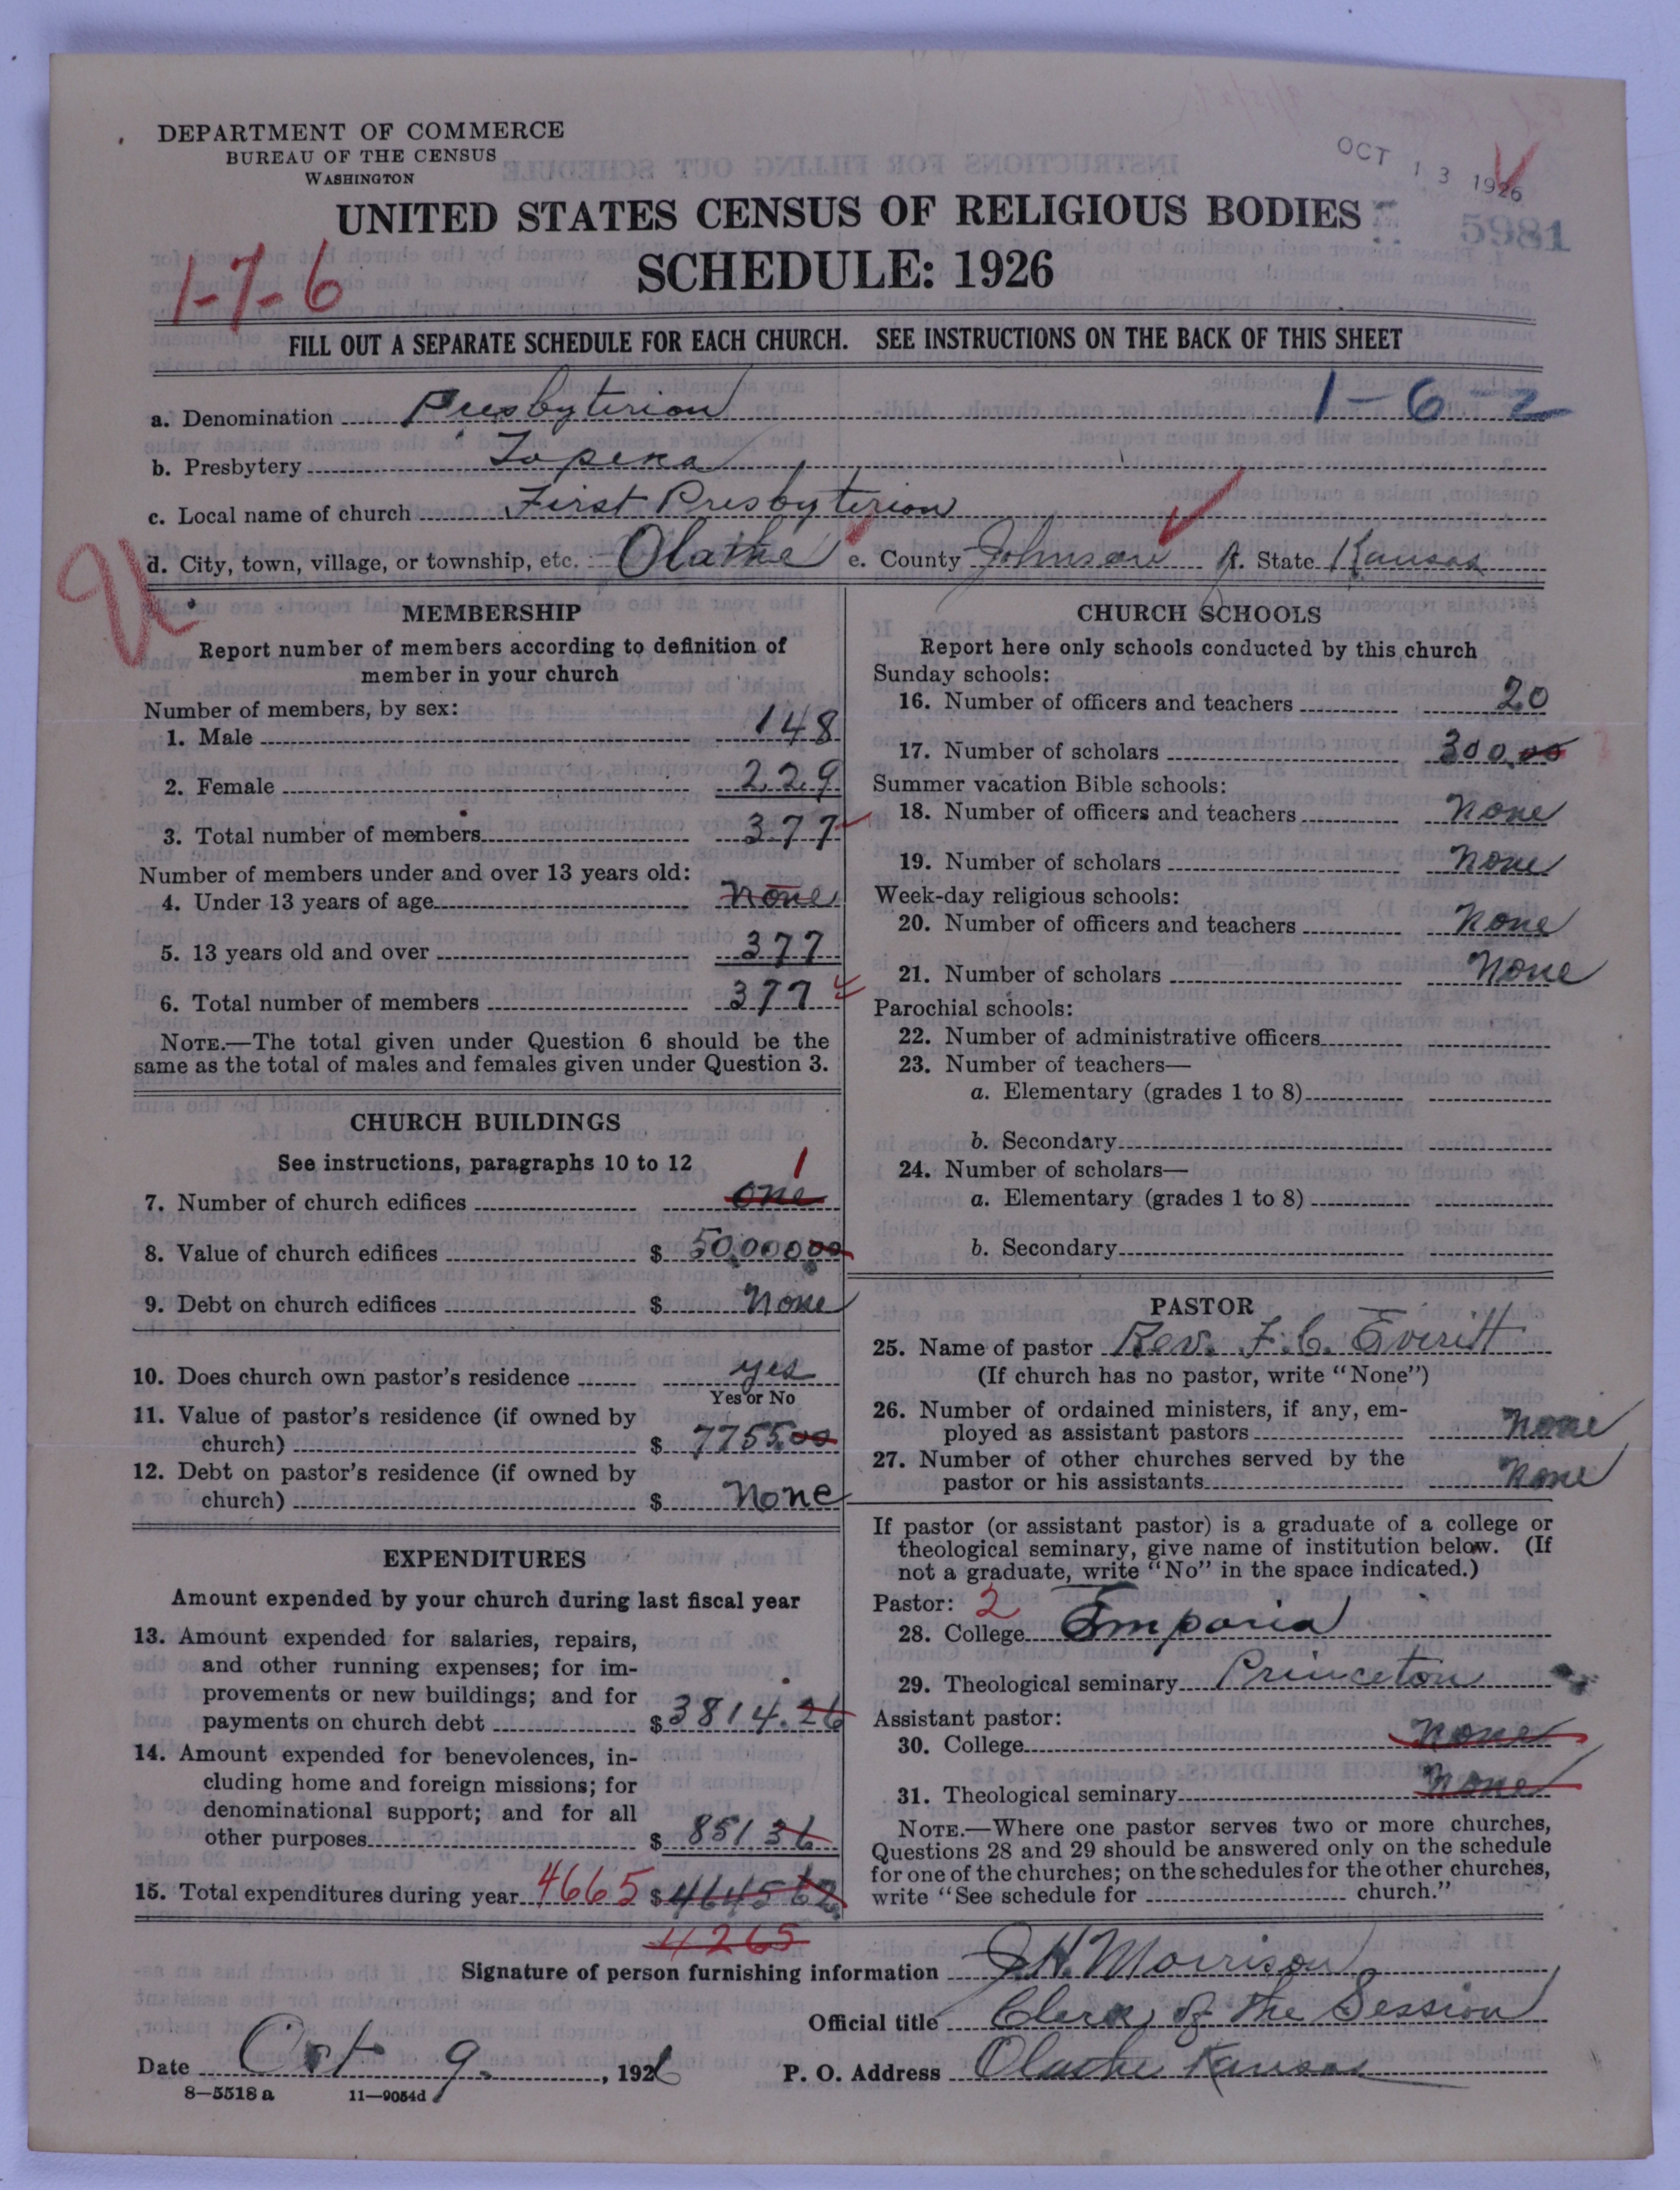 DEPARTMENT OF COMMERCE
BUREAU OF THE CENSUS
WASHINGTON
OCT 13 1926
UNITED STATES CENSUS OF RELIGIOUS BODIES
5981
SCHEDULE: 1926
1-7-6
FILL OUT A SEPARATE SCHEDULE FOR EACH CHURCH. SEE INSTRUCTIONS ON THE BACK OF THIS SHEET
a. Denomination Presbyterian 1-6-2
b. Presbytery Topeka
c. Local name of church First Presbyterian
d. City, town, village, or township, etc. Olathe e. County Johnson f. State Kansas
MEMBERSHIP
Report number of members according to definition of
member in your church
Number of members, by sex:
1. Male 148
2. Female 229
3. Total number of members 377
Number of members under and over 13 years old:
4. Under 13 years of age None
5. 13 years old and over 377
6. Total number of members 377
NOTE.—The total given under Question 6 should be the
same as the total of males and females given under Question 3.
CHURCH BUILDINGS
See instructions, paragraphs 10 to 12 1
7. Number of church edifices one
8. Value of church edifices $ 50,000 00
9. Debt on church edifices $ None
10. Does church own pastor's residence yes
Yes or No
11. Value of pastor's residence (if owned by
church) $ 7755 00
12. Debt on pastor's residence (if owned by
church) $ None
EXPENDITURES
Amount expended by your church during last fiscal year
13. Amount expended for salaries, repairs,
and other running expenses; for im-
provements or new buildings; and for
payments on church debt $ 3814.26
14. Amount expended for benevolences, in-
cluding home and foreign missions; for
denominational support; and for all
other purposes $ 851 36
15. Total expenditures during year 4665 $ 4645 62
4265
CHURCH SCHOOLS
Report here only schools conducted by this church
Sunday schools:
16. Number of officers and teachers 20
17. Number of scholars 300.00
Summer vacation Bible schools:
18. Number of officers and teachers None
19. Number of scholars None
Week-day religious schools:
20. Number of officers and teachers None
21. Number of scholars None
Parochial schools:
22. Number of administrative officers
23. Number of teachers—
a. Elementary (grades 1 to 8)
b. Secondary
24. Number of scholars—
a. Elementary (grades 1 to 8)
b. Secondary
PASTOR
25. Name of pastor Rev. F. C. Everitt
(If church has no pastor, write "None")
26. Number of ordained ministers, if any, em-
ployed as assistant pastors None
27. Number of other churches served by the
pastor or his assistants None
If pastor (or assistant pastor) is a graduate of a college or
theological seminary, give name of institution below. (If
not a graduate, write "No" in the space indicated.)
Pastor: 2
28. College Emporia
29. Theological seminary Princeton
Assistant pastor:
30. College None
31. Theological seminary None
NOTE.—Where one pastor serves two or more churches,
Questions 28 and 29 should be answered only on the schedule
for one of the churches; on the schedules for the other churches,
write "See schedule for church."
Signature of person furnishing information J. H. Morrison
Official title Clerk of the Session
Date Oct 9. , 1926 P. O. Address Olathe Kansas
8—5518 a 11—9054d